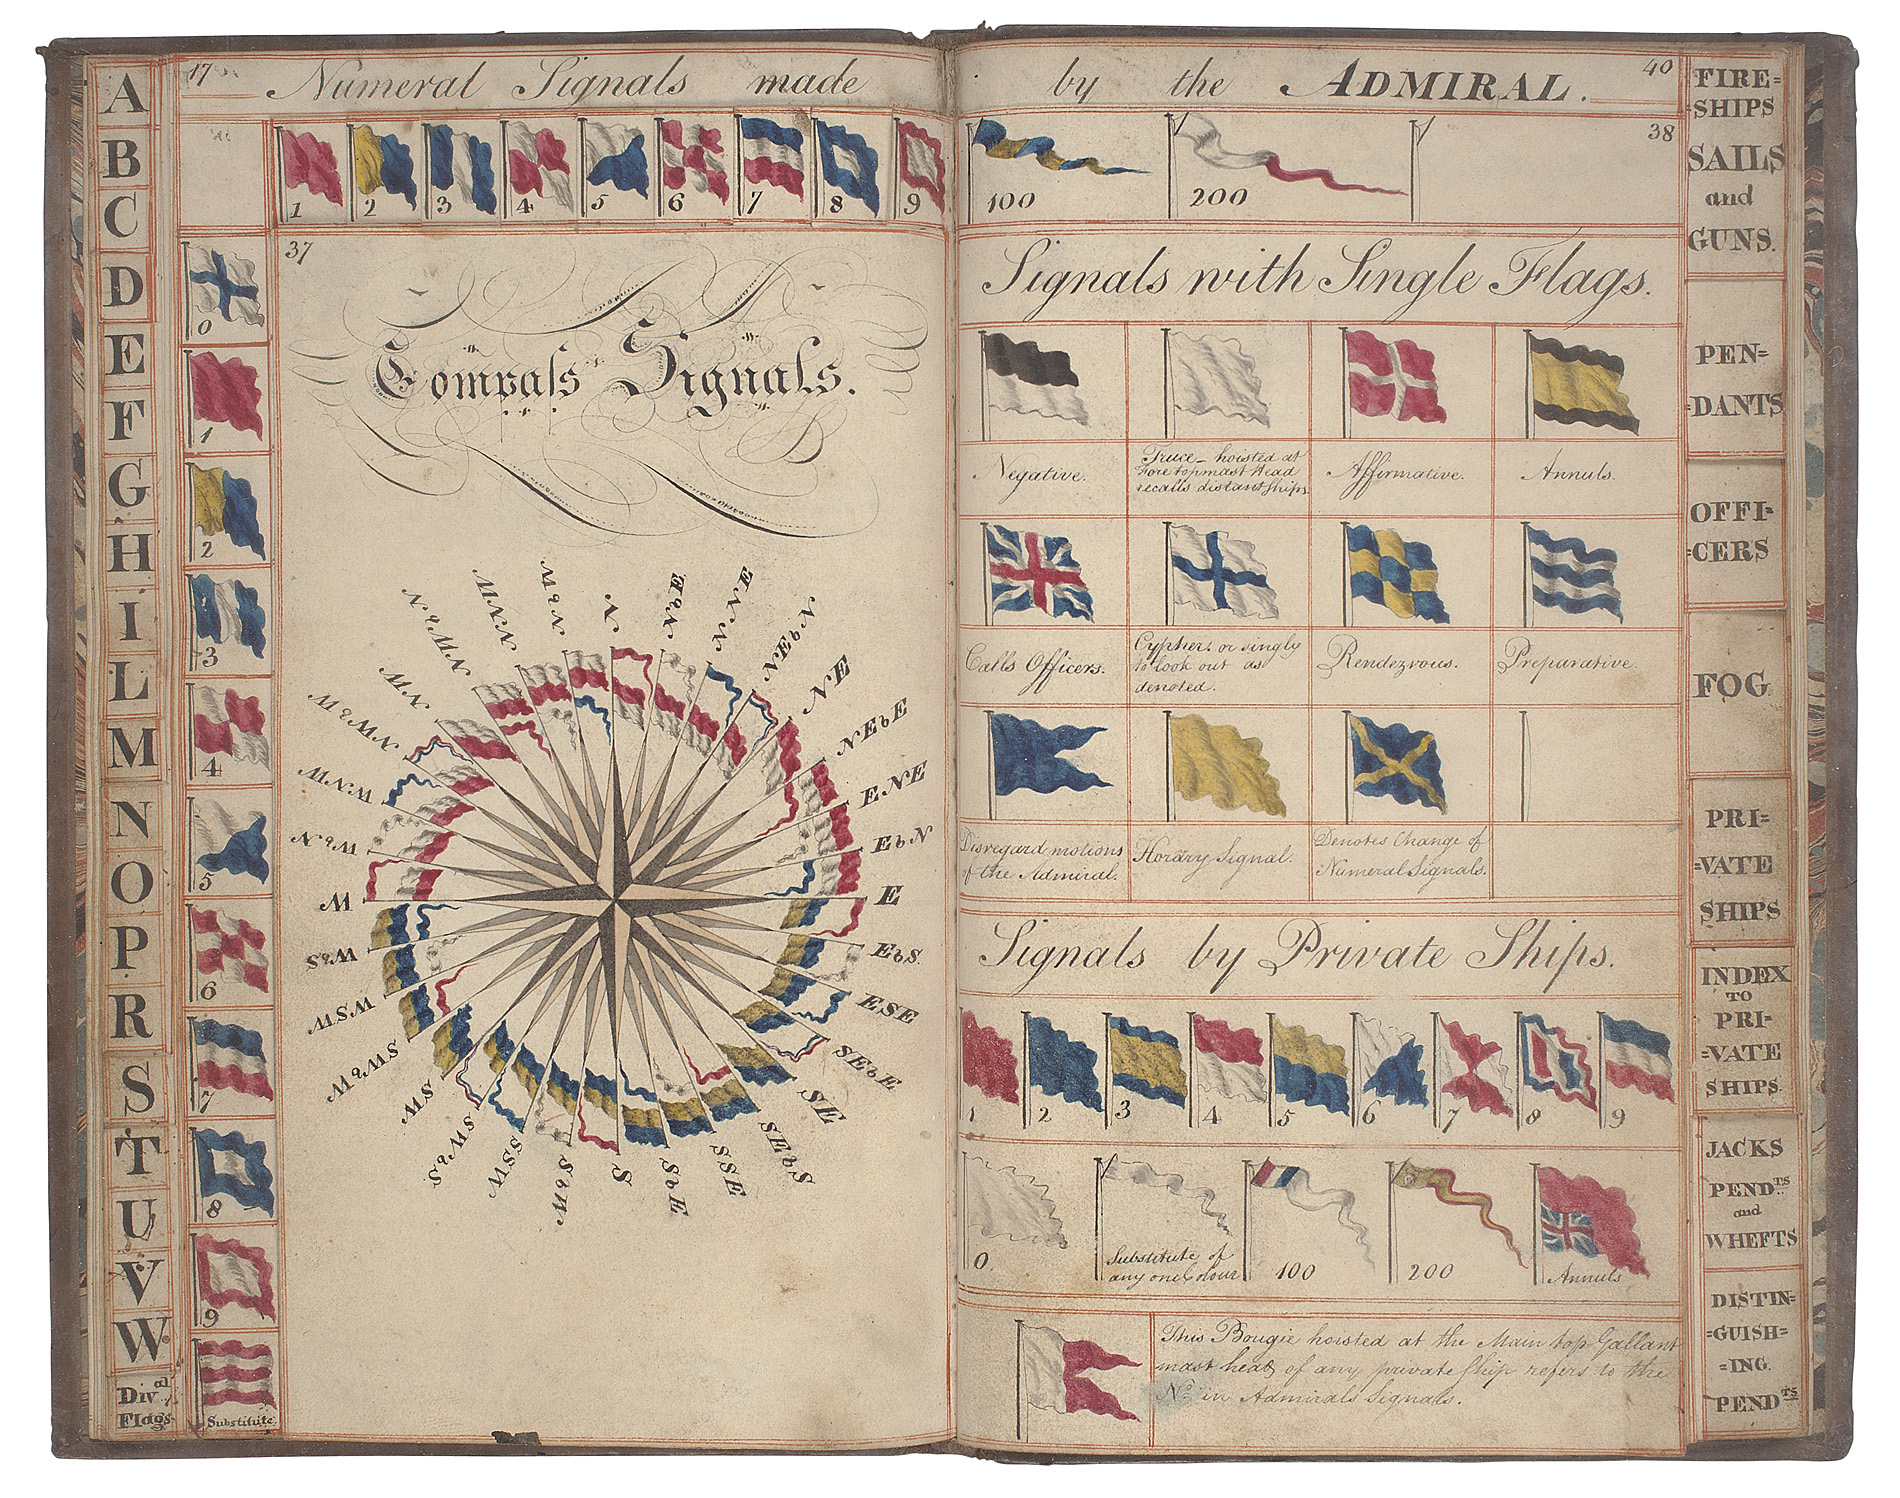 17
Numeral Signals made by the ADMIRAL.
40
A
B
C
D
E
F
G
H
I
L
M
N
O
P
R
S
T
U
V
W
Div.al
Flags
1 2 3 4 5 6 7 8 9
0
1
2
3
4
5
6
7
8
9
Substitute
37
Compaſs Signals.
N
NbE
NNE
NEbN
NE
NEbE
ENE
EbN
E
EbS
ESE
SEbE
SE
SEbS
SSE
SbE
S
SbW
SSW
SWbS
SW
SWbW
WSW
WbS
W
WbN
WNW
NWbW
NW
NWbN
NNW
NbW
100 200
38
Signals with Single Flags.
Negative.
Truce_ hoisted at
Fore topmast Head
recalls distant Ships
Affirmative.
Annuls.
Calls Officers.
Cypher. or singly
to look out as
denoted.
Rendezvous.
Preparative.
Disregard motions
of the Admiral.
Horary Signal.
Denotes Change of
Numeral Signals.
Signals by Private Ships.
1 2 3 4 5 6 7 8 9
0.
Substitute of
any one Colour
100
200
Annuls
This Bougie hoisted at the Main top Gallant
mast head of any private Ship refers to the
No. in Admirals Signals.
FIRE=
=SHIPS
SAILS
and
GUNS.
PEN=
=DANTS
OFFI=
=CERS
FOG
PRI=
=VATE
SHIPS
INDEX
TO
PRI=
=VATE
SHIPS.
JACKS
PENDTS
and
WHEFTS
DISTIN=
=GUISH=
=ING.
PENDTS